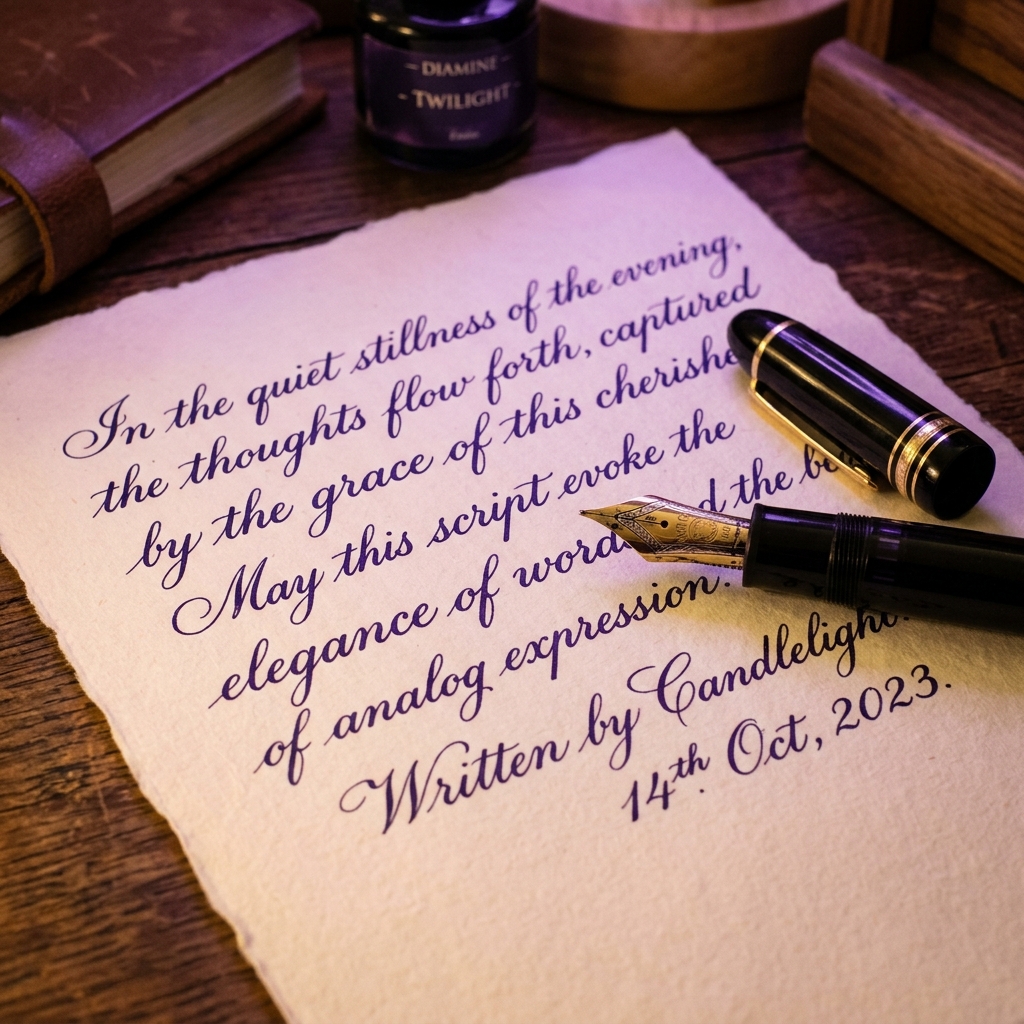 DIAMINE
TWILIGHT
In the quiet stillness of the evening,
the thoughts flow forth, captured
by the grace of this
May this script evoke the
elegance of the
of analog expression.
Written by Candlelight.
14th Oct, 2023.